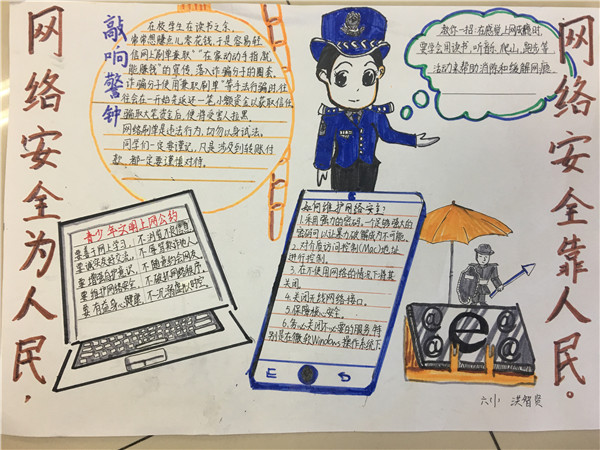 网络安全为人民，
敲响警钟
在校学生在读书之余，
常常想赚点儿零花钱，于是容易轻
信网上刷单兼职、"在家动动手指，就
能赚钱"的宣传，落入诈骗分子的圈套。
诈骗分子使用兼职刷单"等手法行骗时，往
往会在一开始先返还一笔小额资金以获取信任
骗取大笔资金后，便将受害人拉黑。
网络刷单是违法行为，切勿以身试法，
同学们一定要谨记，凡是涉及到转账付
款，都一定要谨慎对待。
教你一招：在感觉上网成瘾时，
要学会用读书、听新、爬山、跑步等
活动来帮助消除和缓解网瘾。
网络安全靠人民。
青少年文明上网公约
要善于网上学习，不浏览不良信息
要诚实友好交流，不辱欺诈他人
要增强自护意识，不随意约会网友
要维护网络安全，不破坏网络秩序
要有益身心健康，不沉溺虚拟时空
如何维护网络安全？
1.采用强力的密码。一个足够强大的
密码可以让暴力破解成为不可能。
2.对介质访问控制(Mac)地址
进行控制。
3.在不使用网络的情况下将其
关闭。
4.关闭无线网络接口。
5.保障核心安全。
6.关闭不必要的服务，特
别是在微软Windows操作系统下
e
@
@
@
@
六小 洪智贤